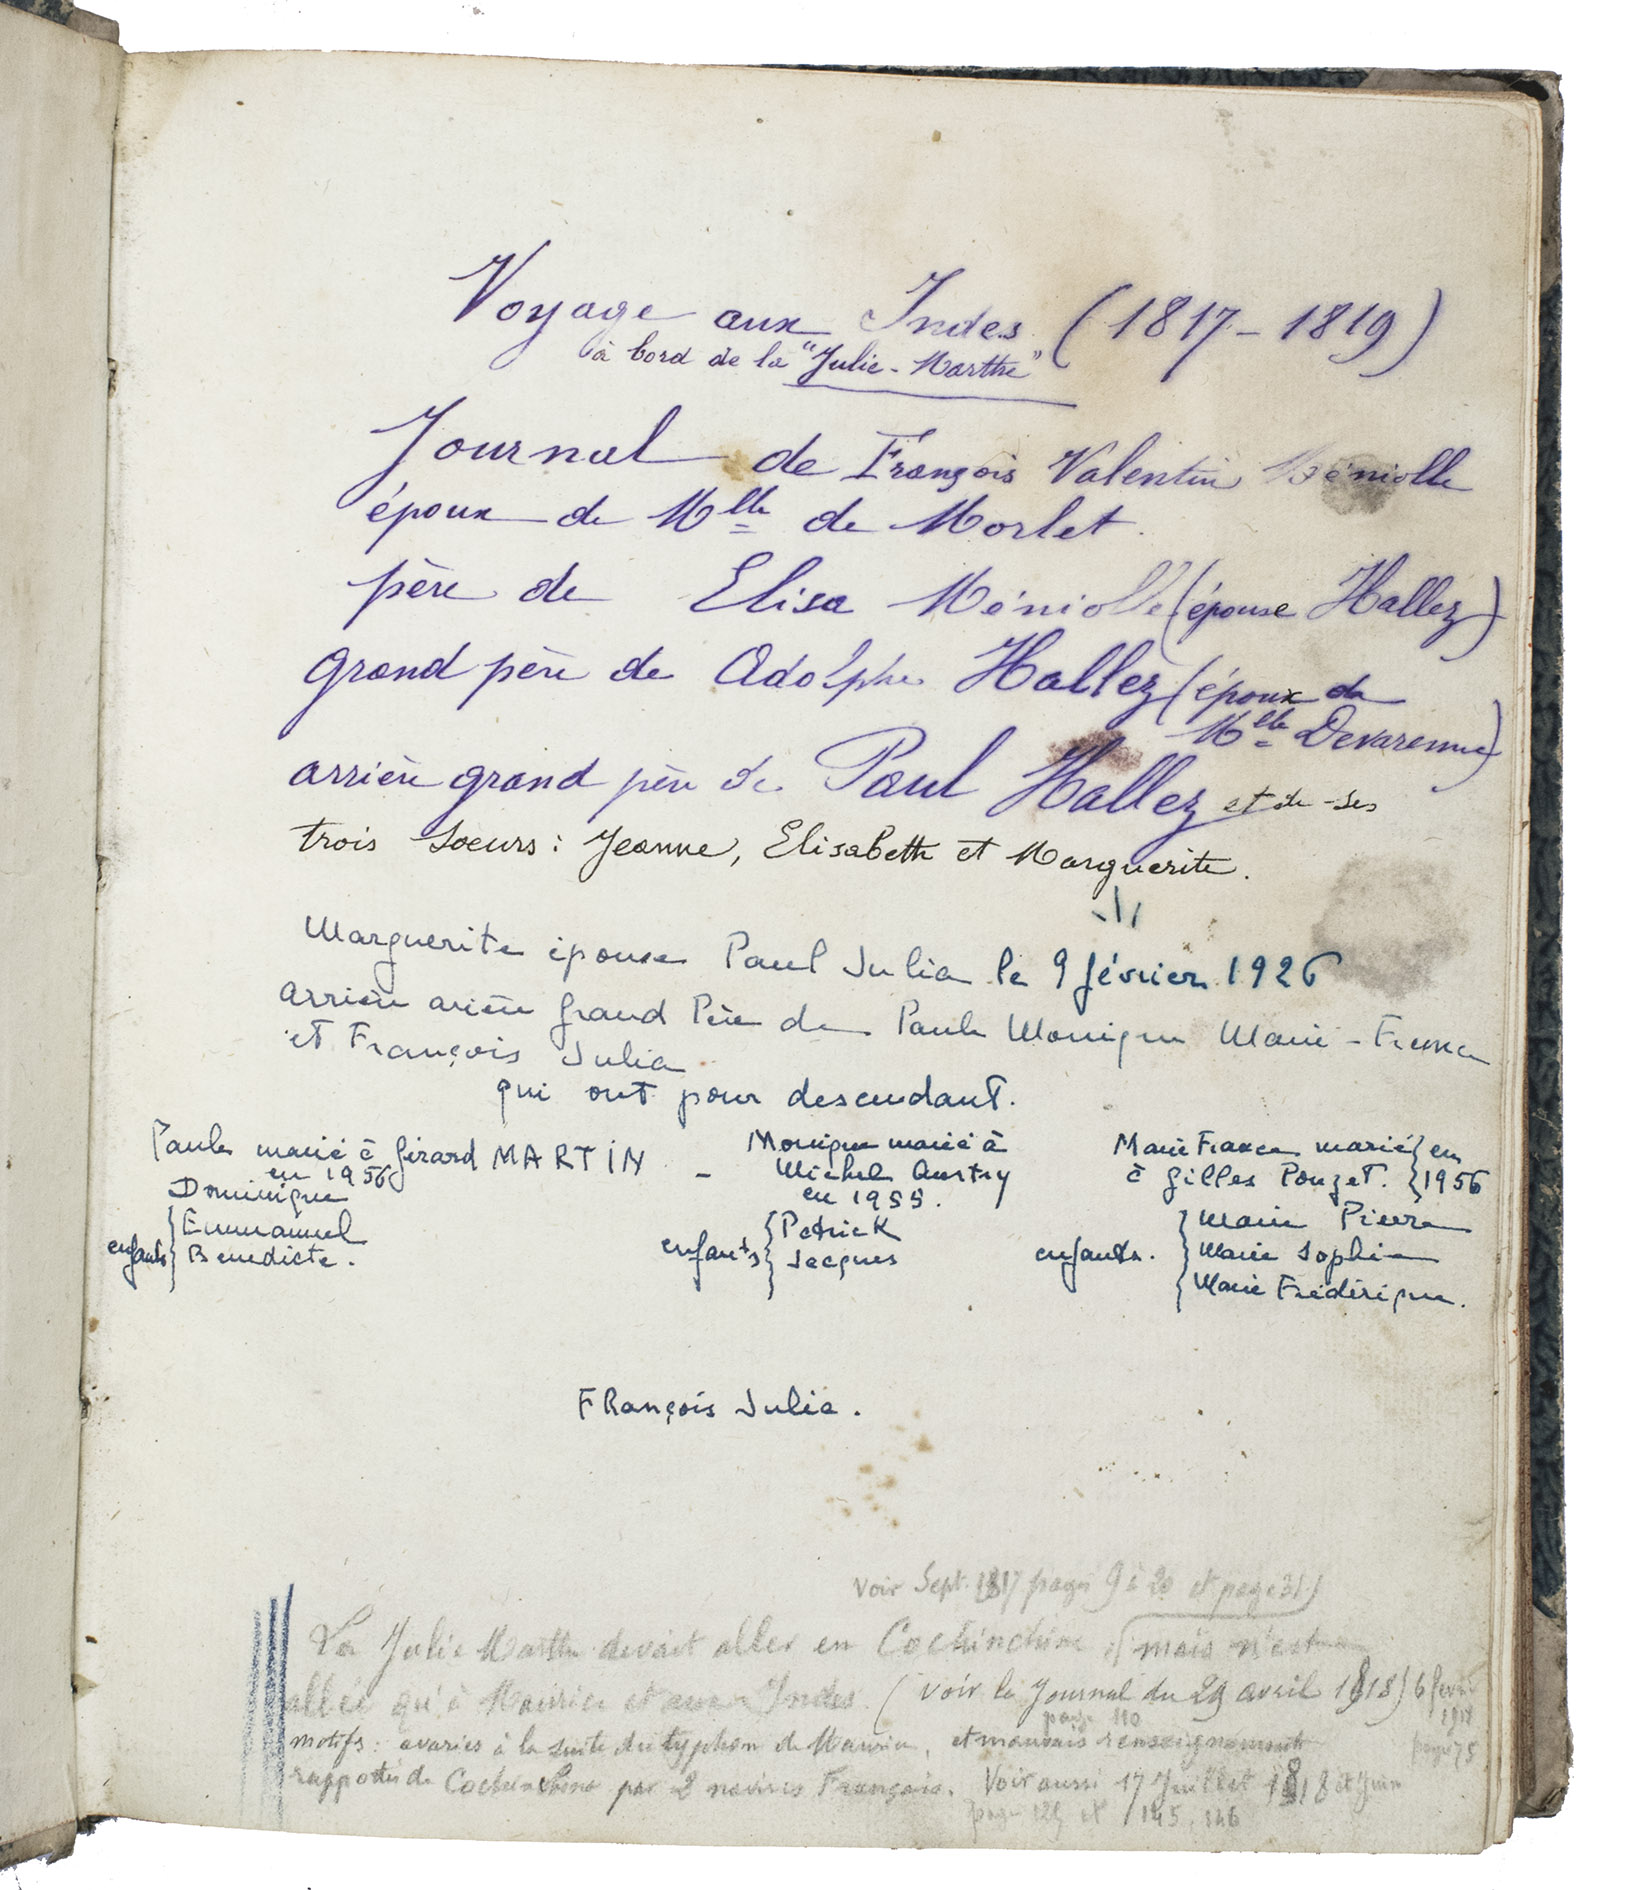 Voyage aux Indes (1817-1819)
à bord de la "Julie-Marthe"
Journal de François Valentin Méniolle
époux de Mlle de Morlet.
père de Elisa Méniolle (épouse Hallez)
grand père de Adolphe Hallez (époux de
Mlle Devarenne)
arrière grand père de Paul Hallez et de ses
trois soeurs : Jeanne, Elisabeth et Marguerite.
Marguerite épouse Paul Julia le 9 février 1926
arrière arière grand Père de Paule Monique Marie-France
et François Julia
qui ont pour descendant.
Paule marié à Gérard MARTIN
en 1956
Dominique
Emmanuel
enfants Benedicte.
- Monique marié à
Michel
en 1955.
Patrick
enfants Jacques
Marie France marié en
à Gilles Pouzet. 1956
Marie Pierre
enfants. Marie Sophie
Marie Frédérique.
FRançois Julia.
voir Sept. 1817 pages 9 à 20 et page 31)
La Julie Marthe devait aller en Cochinchine, mais n'est
allée qu'à Maurice et aux Indes. (voir le Journal du 29 avril 1818) 6 février
page 110 1818
motifs : avaries à la suite du typhon de Maurice, et mauvais renseignements page 75
rapportés de Cochinchine par 2 navires Français. Voir aussi 17 Juillet 1818 et Juin
page 129 et 145, 146